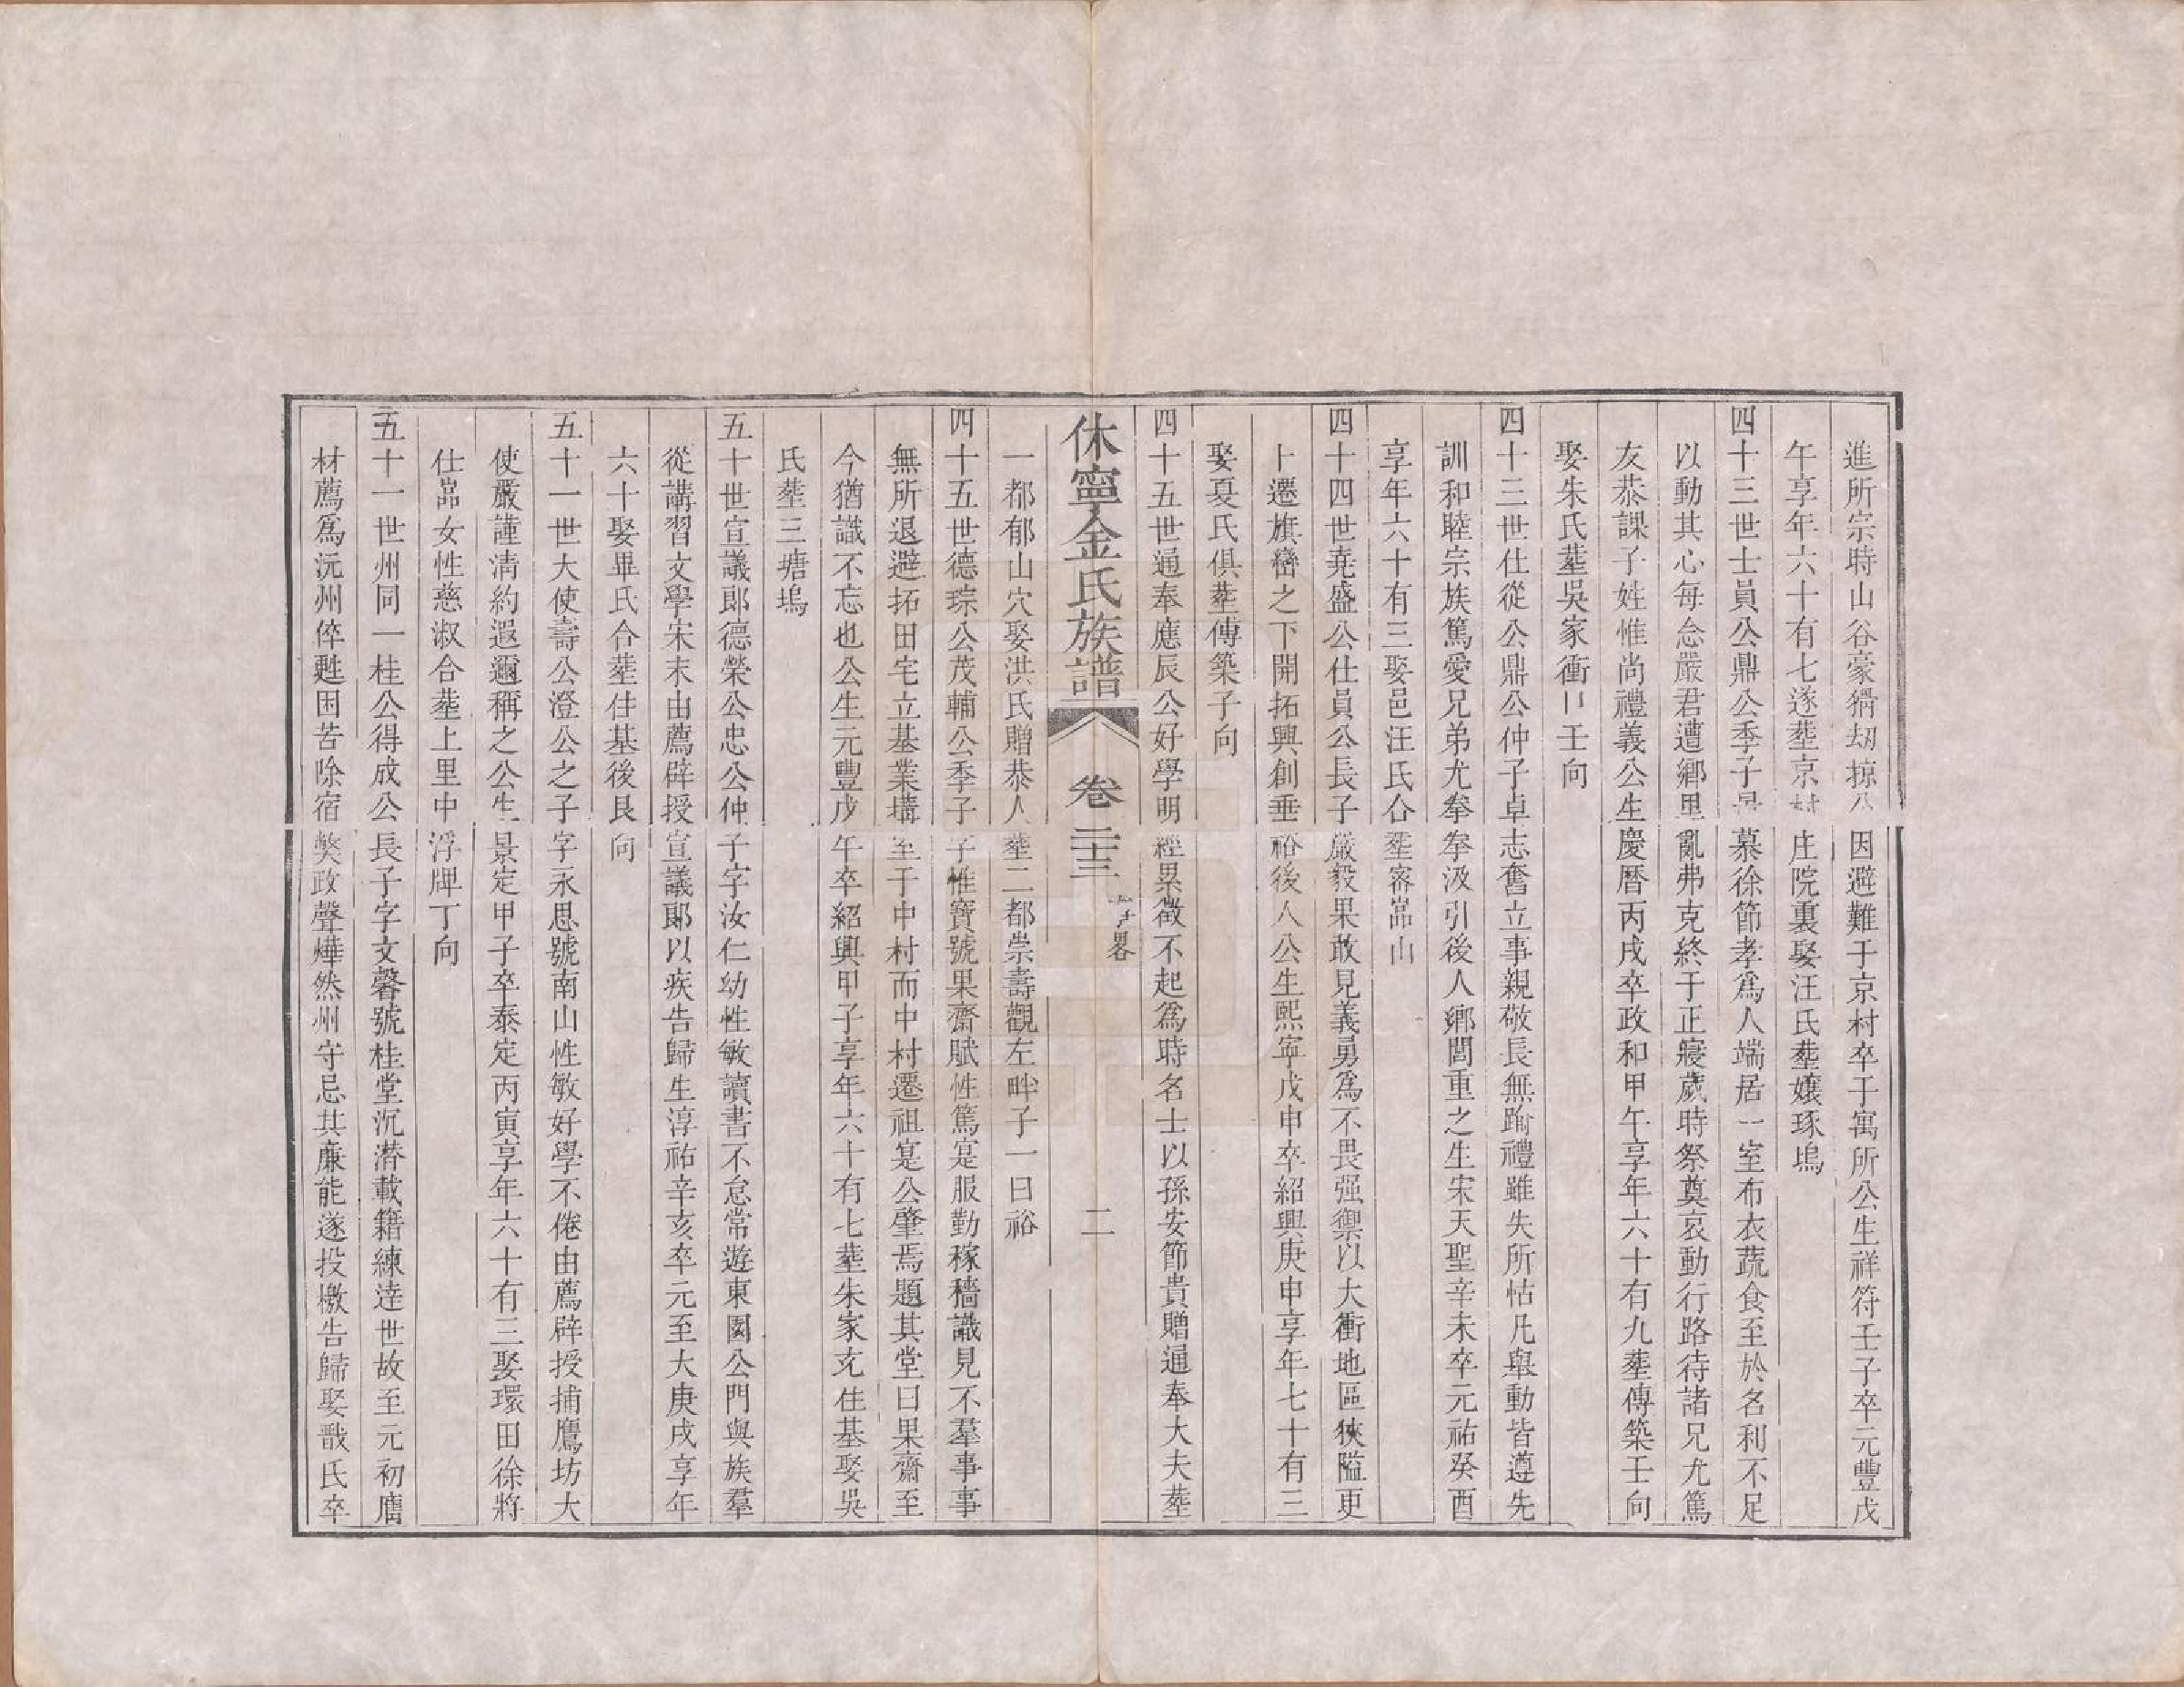 進所宗時山谷豪猾刧掠公因避難于京村卒于寓所公生祥符壬子卒元豐戊
午享年六十有七遂塟京村庄院裏娶汪氏塟孃琢塢
四十三世士員公鼎公季子最慕徐節孝爲人端居一室布衣蔬食至於名利不足
以動其心每念嚴君遭鄉里亂弗克終于正寢歲時祭奠哀動行路待諸兄尤篤
友恭課子姓惟尚禮義公生慶曆丙戌卒政和甲午享年六十有九塟傳築壬向
娶朱氏塟吳家衝口壬向
四十三世仕從公鼎公仲子卓志奮立事親敬長無踰禮雖失所怙凡舉動皆遵先
訓和睦宗族篤愛兄弟尤拳拳汲引後人鄉閭重之生宋天聖辛未卒元祐癸酉
享年六十有三娶邑汪氏合塟審嵓山
四十四世堯盛公仕員公長子嚴毅果敢見義勇爲不畏强禦以大衝地區狹隘更
卜遷旗巒之下開拓興創垂裕後人公生熙寧戊申卒紹興庚申享年七十有三
娶夏氏俱塟傳築子向
四十五世通奉應辰公好學明經累徵不起爲時名士以孫安節貴贈通奉大夫塟
休寧金氏族譜 卷二十三 二
一都郁山穴娶洪氏贈恭人塟二都崇壽觀左畔子一曰裕
四十五世德琮公茂輔公季子字惟寶號果齋賦性篤寔服勤稼穡識見不羣事事
無所退避拓田宅立基業搆至于中村而中村遷祖寔公肇焉題其堂曰果齋至
今猶識不忘也公生元豐戊午卒紹興甲子享年六十有七塟朱家充住基娶吳
氏塟三塘塢
五十世宣議郎德榮公忠公仲子字汝仁幼性敏讀書不怠常遊東園公門與族羣
從講習文學宋末由薦辟授宣議郎以疾告歸生淳祐辛亥卒元至大庚戌享年
六十娶畢氏合塟住基後艮向
五十一世大使壽公澄公之子字永思號南山性敏好學不倦由薦辟授捕鷹坊大
使嚴謹清約遐邇稱之公生景定甲子卒泰定丙寅享年六十有三娶環田徐將
仕嵓女性慈淑合塟上里中浮牌丁向
五十一世州同一桂公得成公長子字文馨號桂堂沉潜載籍練達世故至元初膺
材薦爲沅州倅甦困苦除宿獘政聲燁然州守忌其廉能遂投檄告歸娶戩氏卒